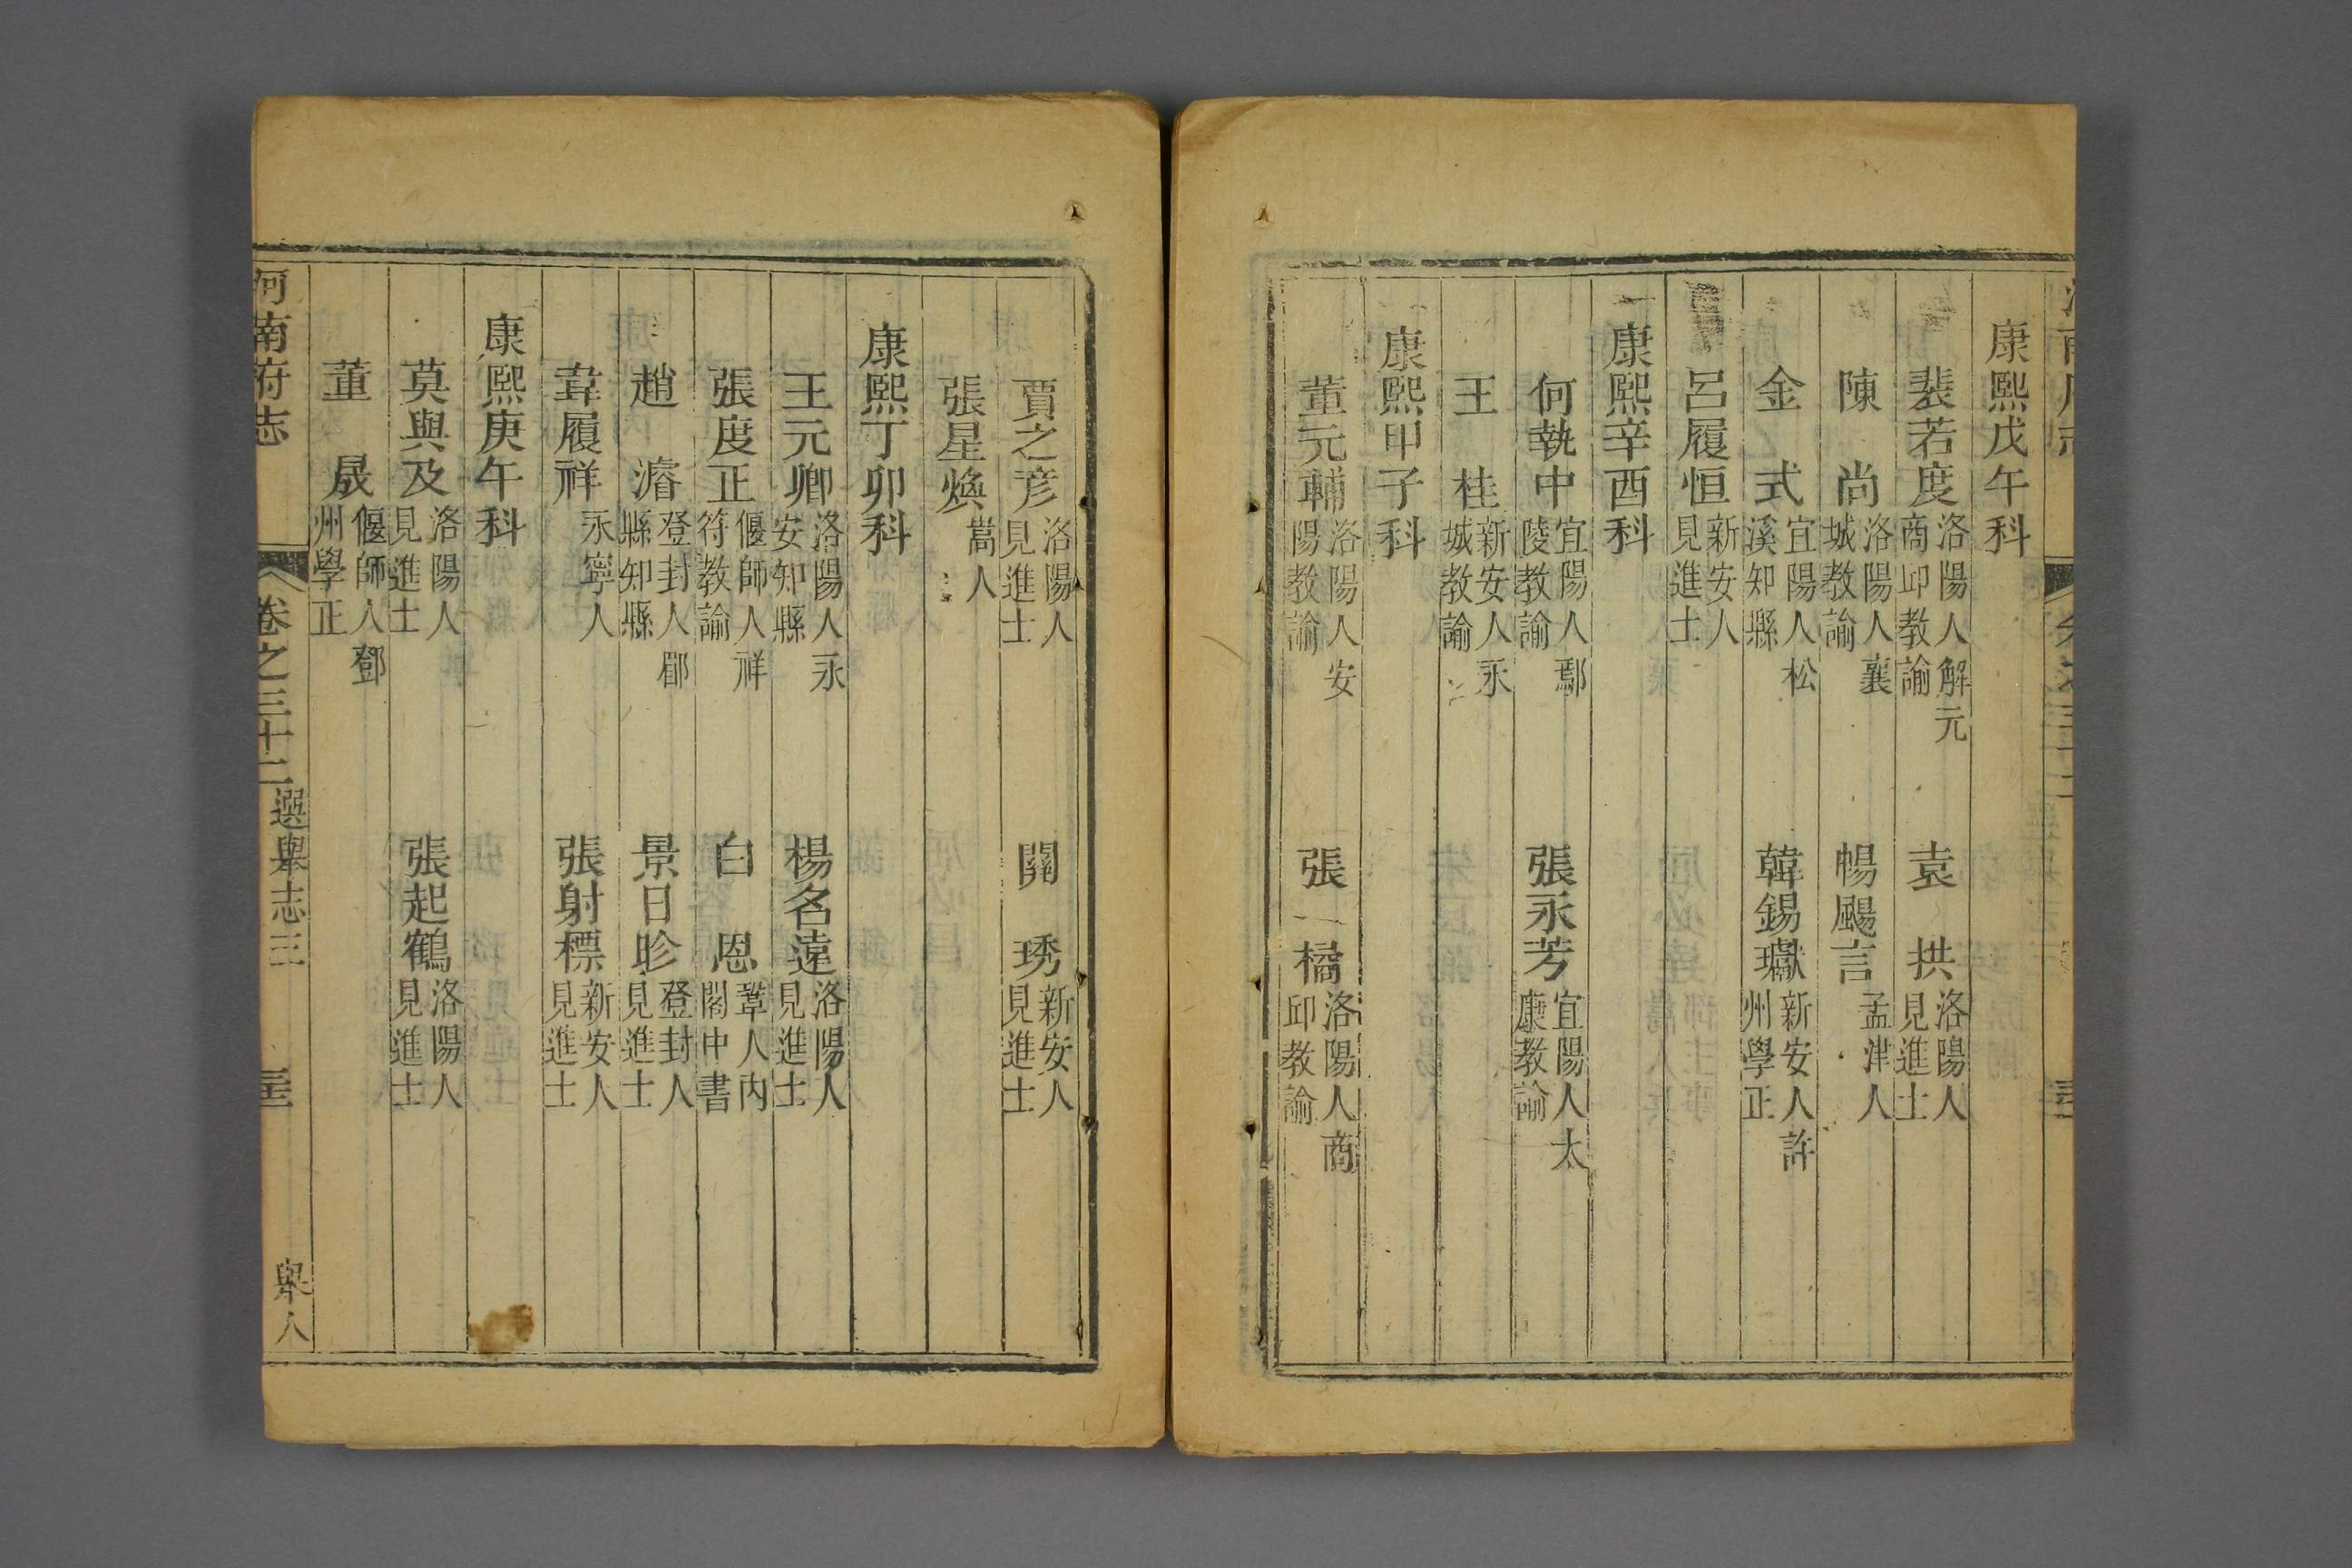 康熙戊午科
裴若度 洛陽人解元商邱教諭 袁拱 洛陽人見進士
陳尚 洛陽人襄城教諭 暢颺言 孟津人
金式 宜陽人松溪知縣 韓錫瓛 新安人許州學正
呂履恒 新安人見進士
康熙辛酉科
何執中 宜陽人鄢陵教諭 張永芳 宜陽人太康教諭
王桂 新安人永城教諭
康熙甲子科
董元輔 洛陽人安陽教諭 張橘 洛陽人商邱教諭
賈之彦 洛陽人見進士 關琇 新安人見進士
張星煥 嵩人
康熙丁卯科
王元卿 洛陽人永安知縣 楊名遠 洛陽人見進士
張度正 偃師人祥符教諭 白恩 鞏人內閣中書
趙濬 登封人郿縣知縣 景日昣 登封人見進士
韋履祥 永寧人 張射標 新安人見進士
康熙庚午科
莫與及 洛陽人見進士 張起鶴 洛陽人見進士
董晟 偃師人鄧州學正
河南府志 卷之三十二 選舉志三 舉人